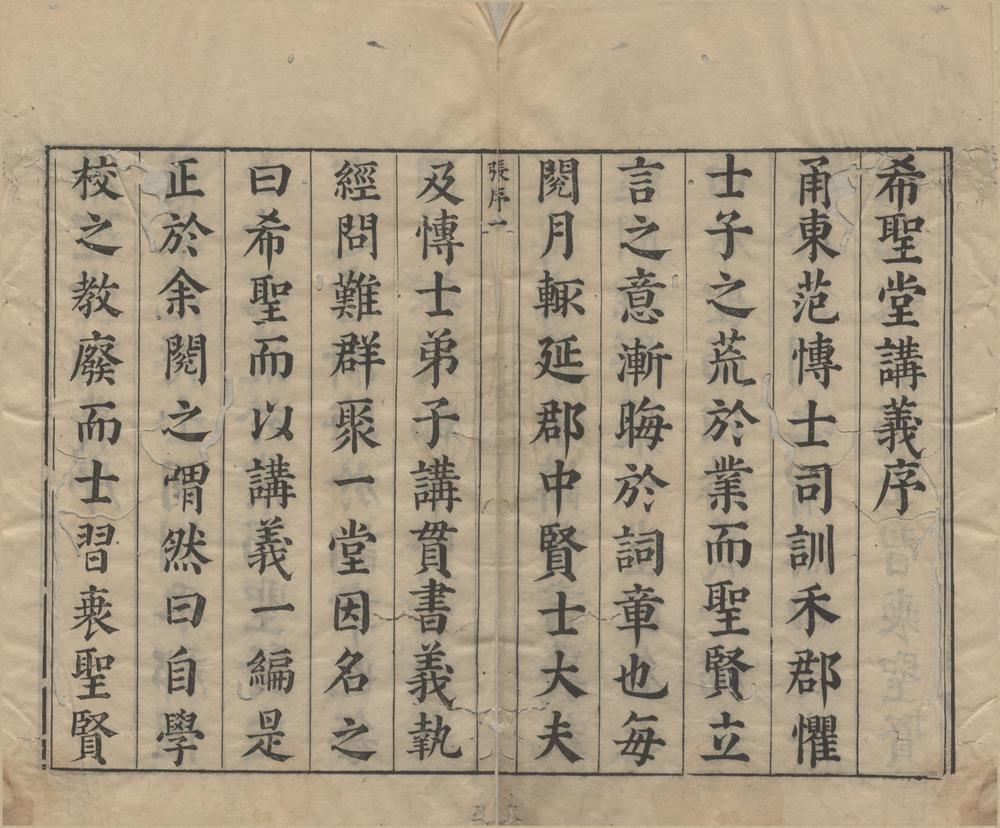 希聖堂講義序
甬東范愽士司訓禾郡懼
士子之荒於業而聖賢立
言之意漸晦於詞章也每
閱月輒延郡中賢士大夫
張序一
及愽士弟子講貫書義執
經問難群聚一堂因名之
曰希聖而以講義一編是
正於余閱之喟然曰自學
校之教廢而士習衰聖賢